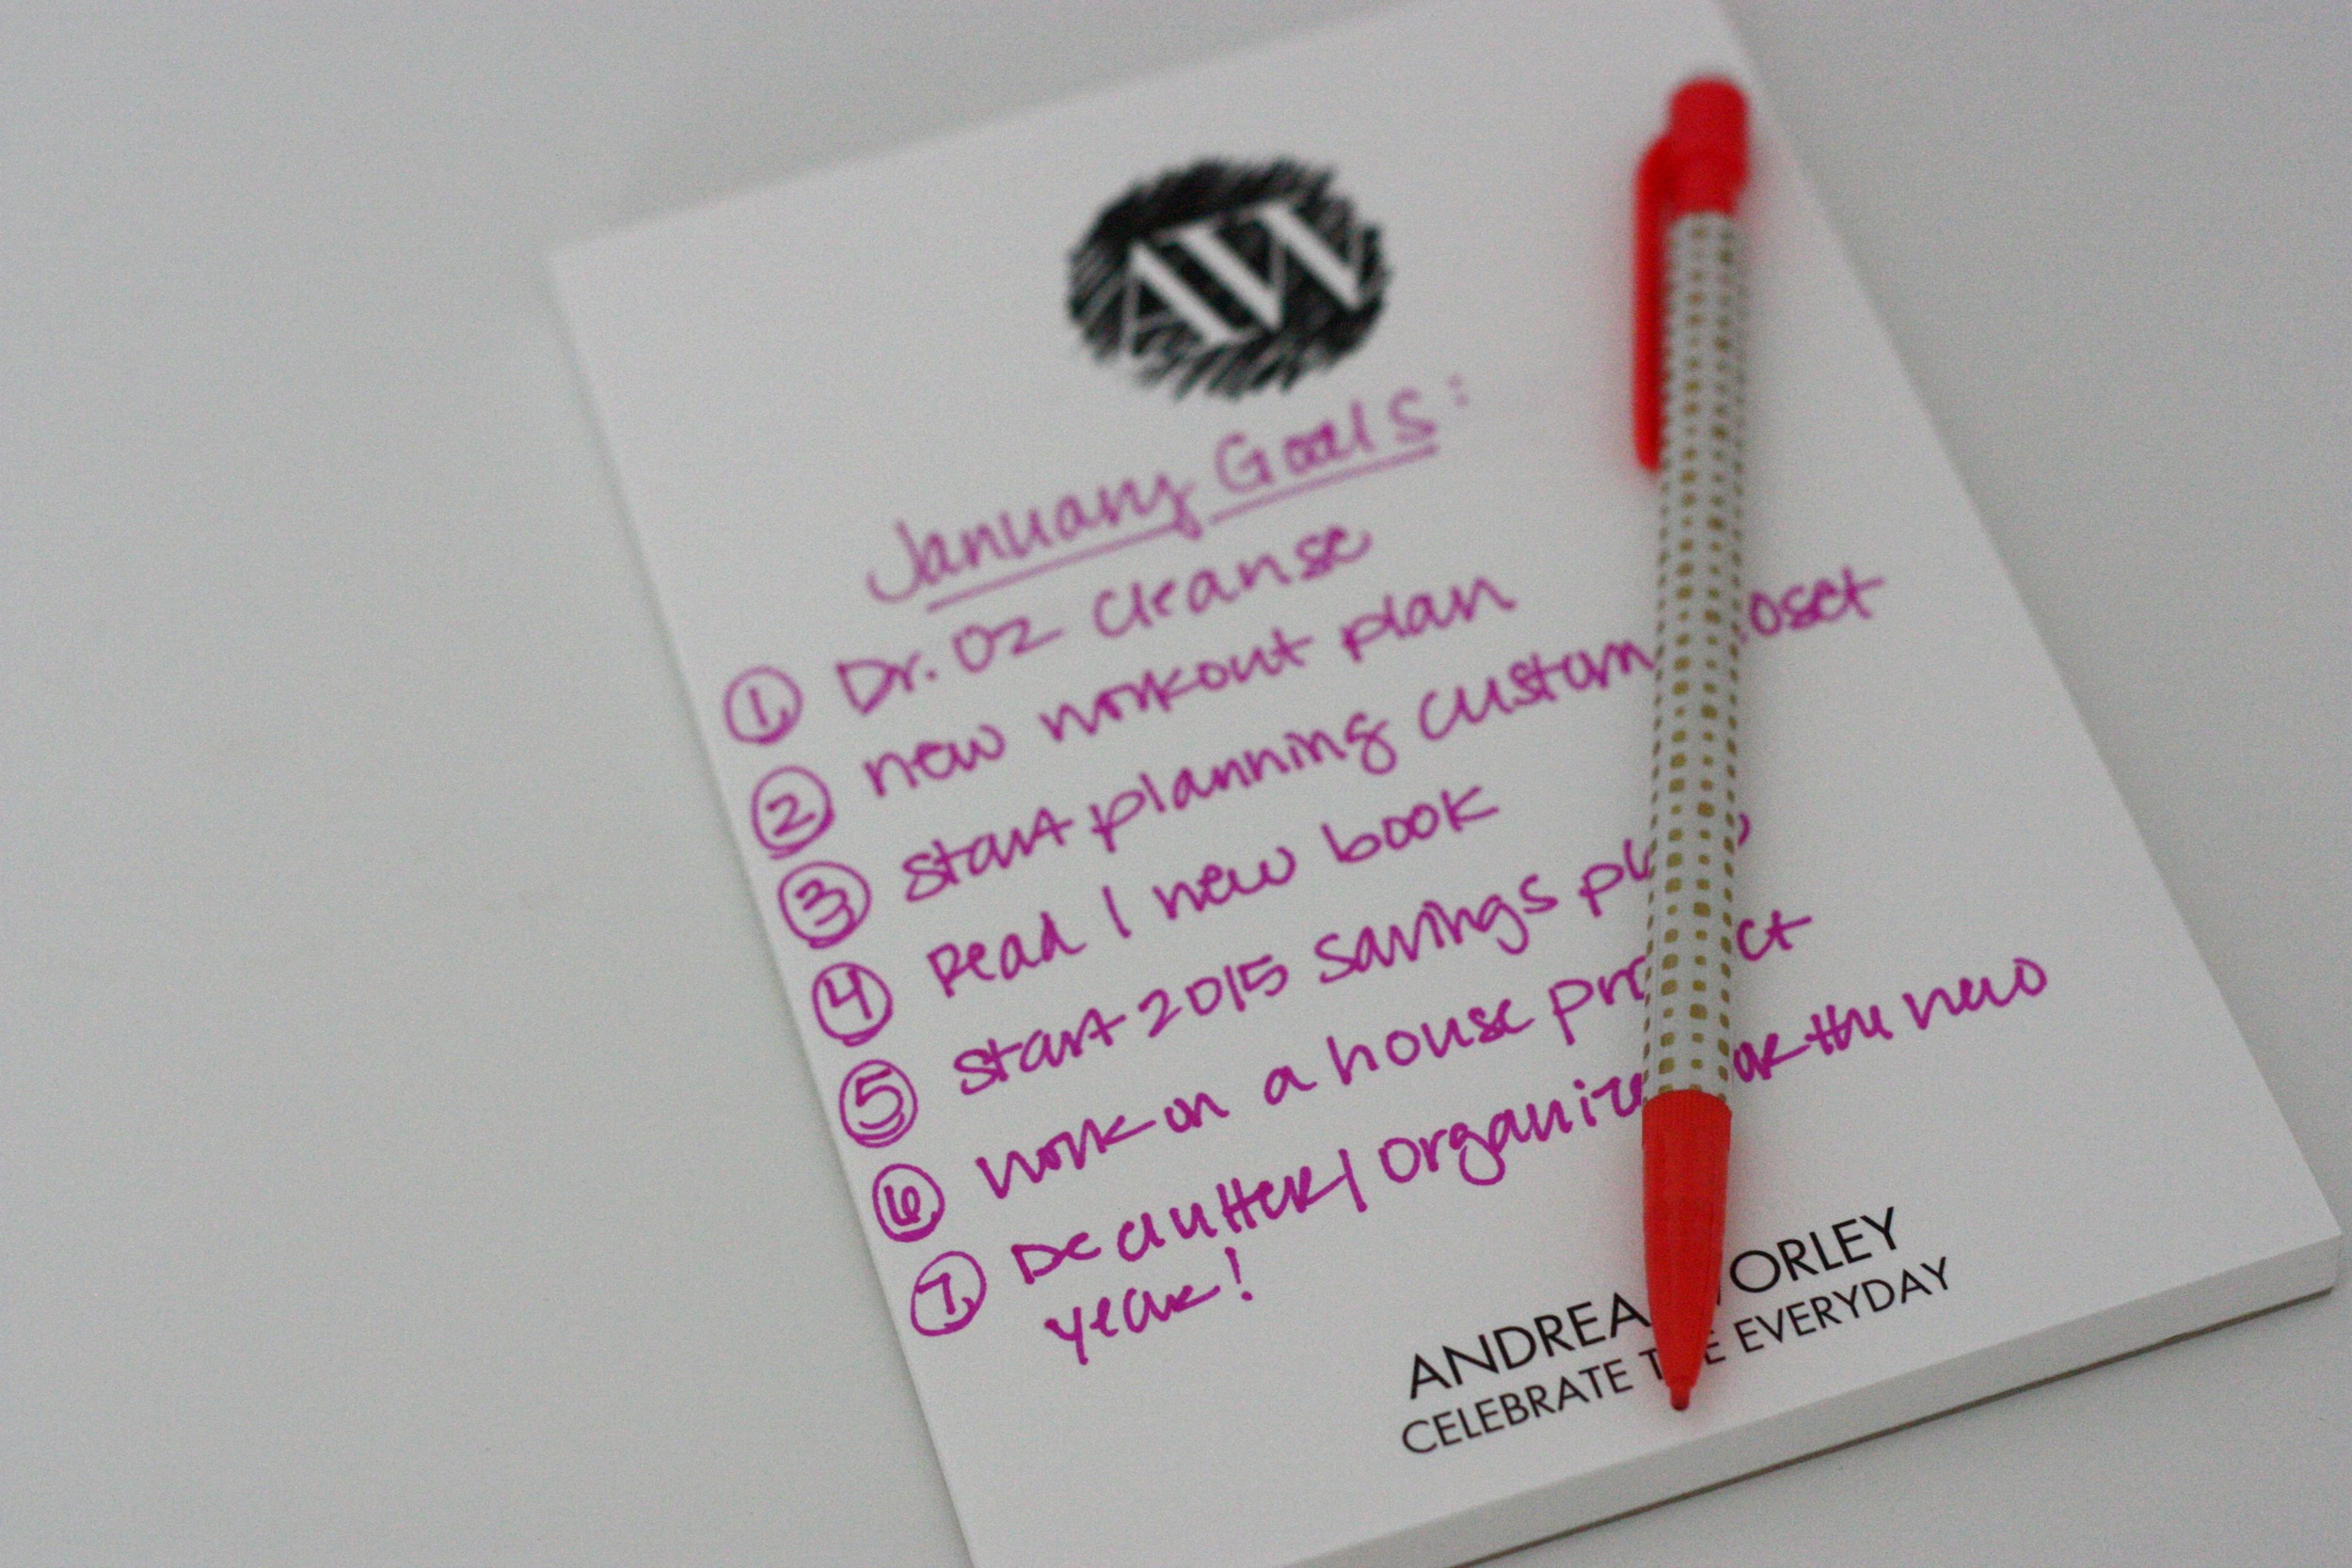 AW
January Goals:
1. Dr. Oz Cleanse
2. new workout plan
3. start planning custom
4. Read 1 new book
5. start 2015 savings
6. work on a house
7. Declutter/organize the new
year!
ANDREA
CELEBRATE EVERYDAY